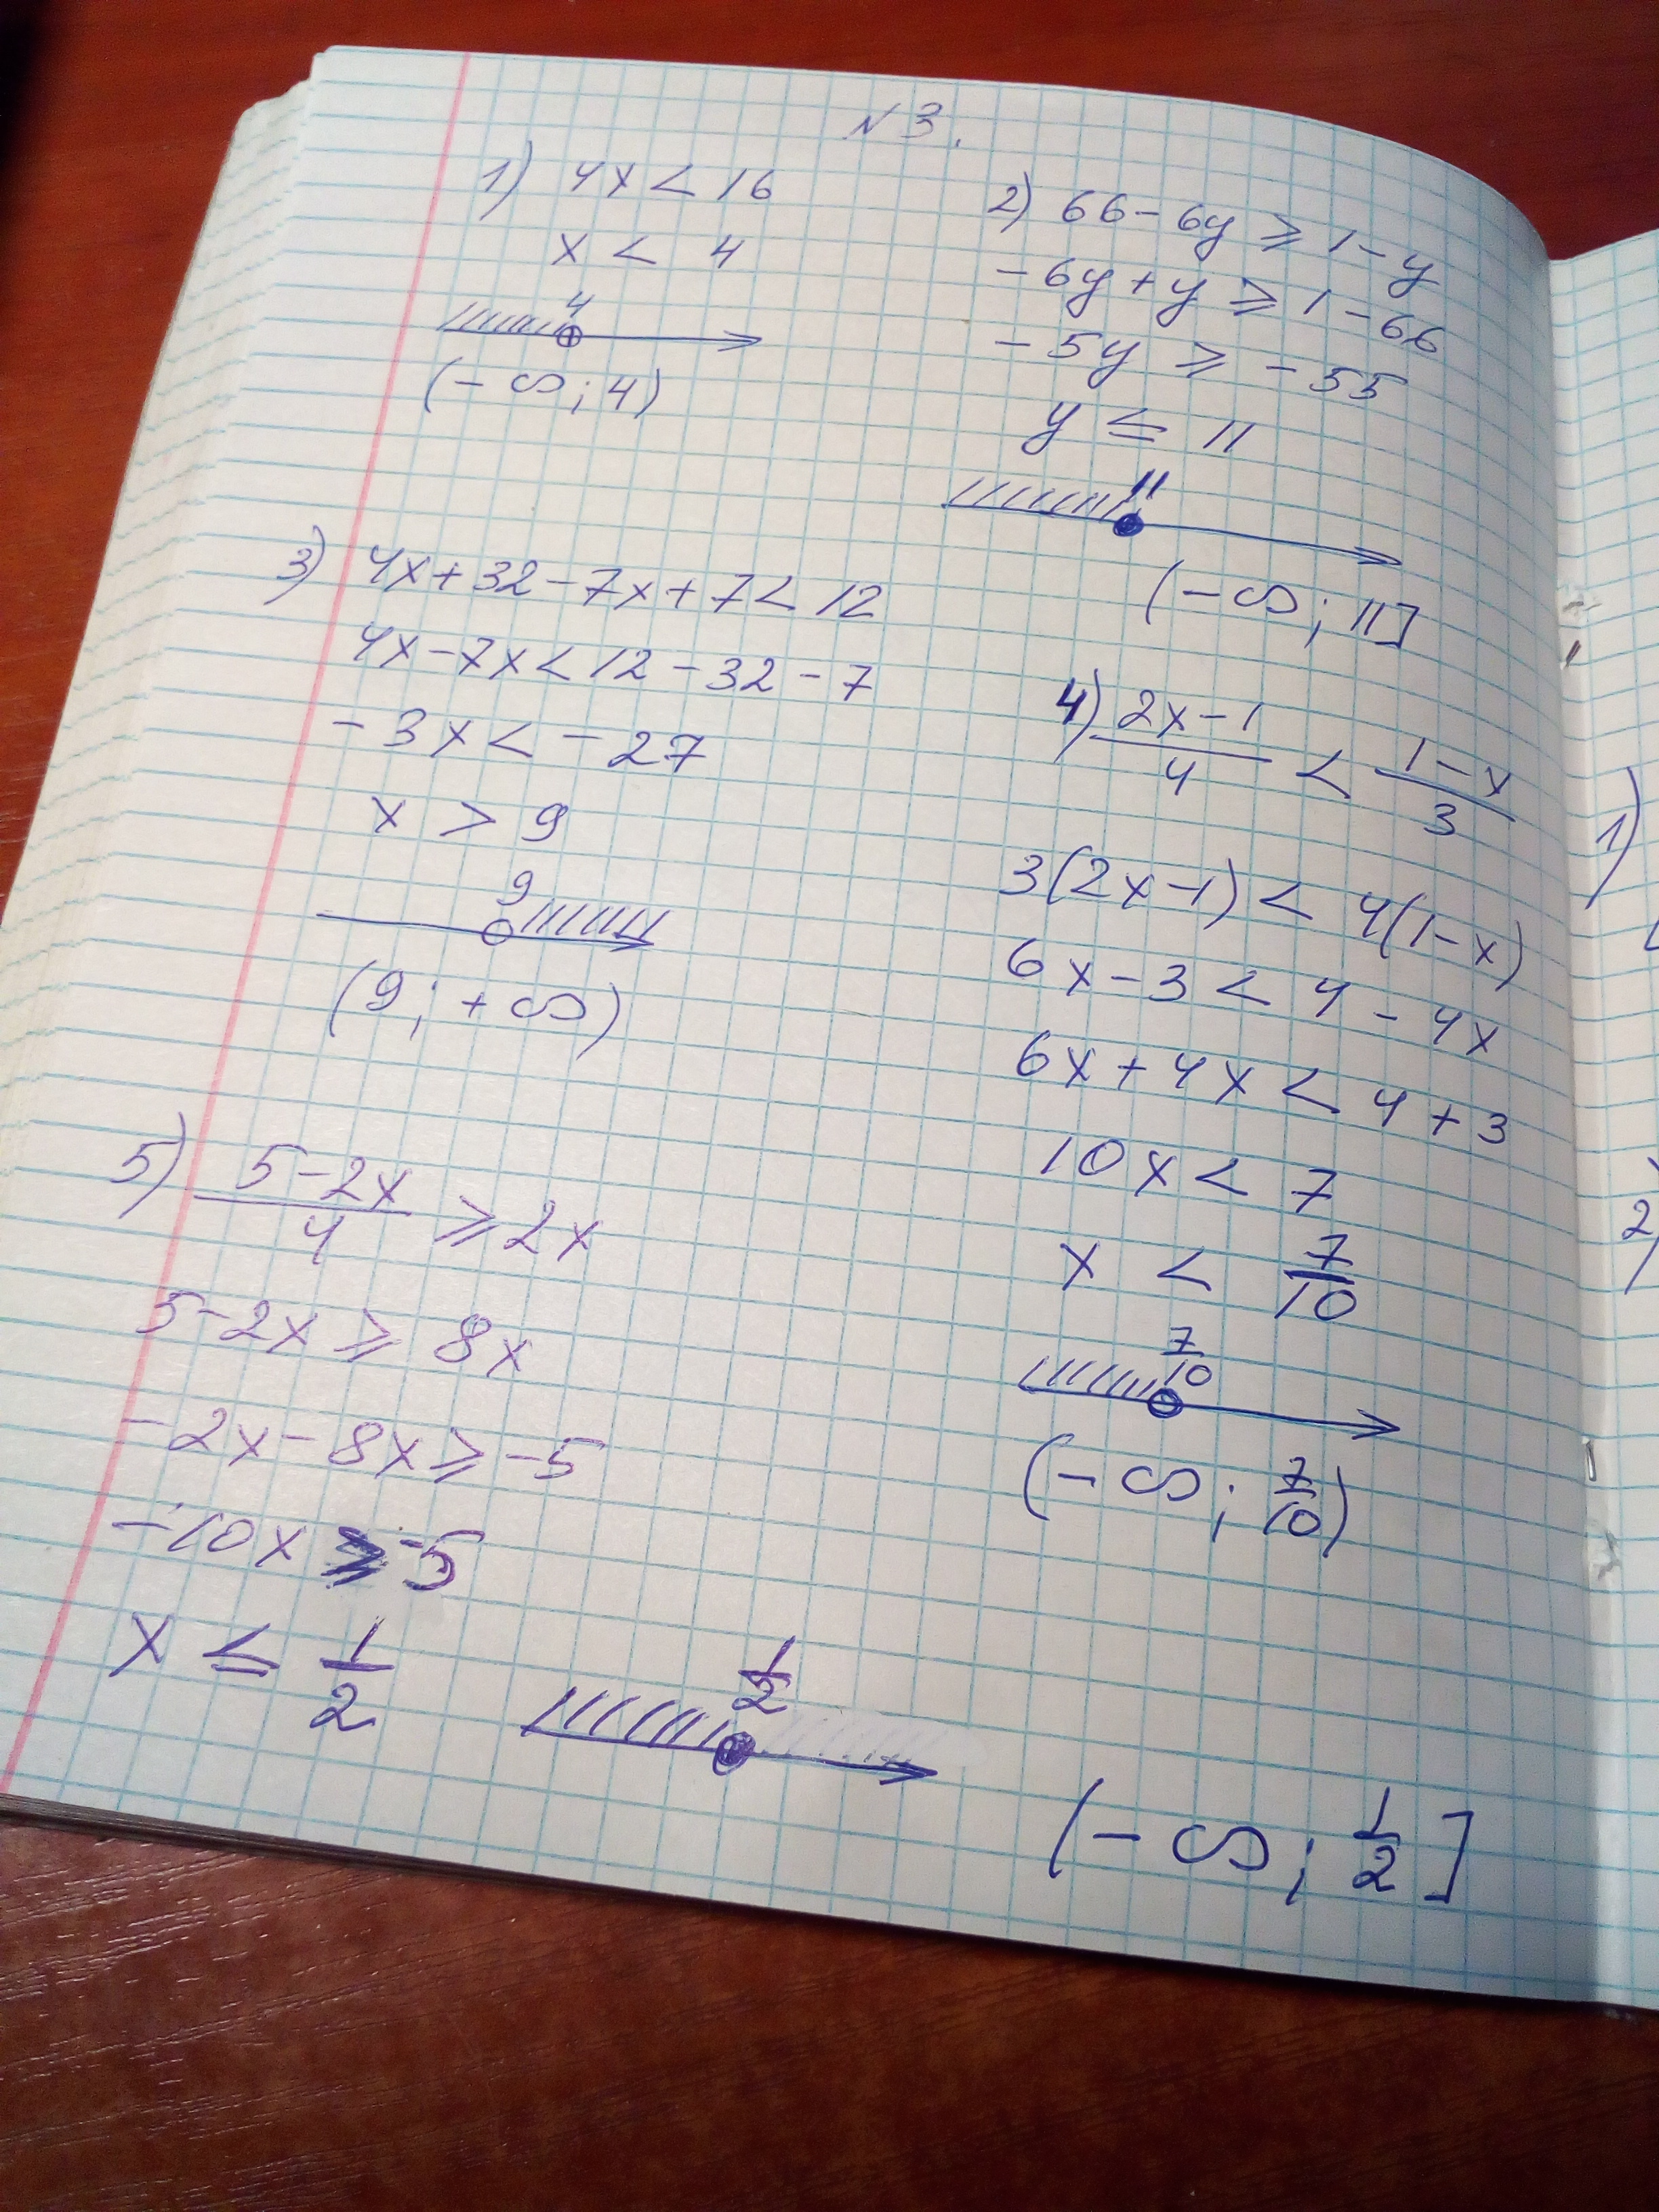 N 3.
1) 4x < 16
x < 4
4
(- ∞; 4)
2) 66 - 6y ⩾ 1 - y
- 6y + y ⩾ 1 - 66
- 5y ⩾ - 55
y ≤ 11
11
(- ∞; 11]
3) 4x + 32 - 7x + 7 < 12
4x - 7x < 12 - 32 - 7
- 3x < - 27
x > 9
9
(9; + ∞)
4) \frac{2x - 1}{4} < \frac{1 - x}{3}
3(2x - 1) < 4(1 - x)
6x - 3 < 4 - 4x
6x + 4x < 4 + 3
10x < 7
x < \frac{7}{10}
\frac{7}{10}
(- ∞; \frac{7}{10})
5) \frac{5 - 2x}{4} ⩾ 2x
5 - 2x ⩾ 8x
- 2x - 8x ⩾ - 5
- 10x ⩾ - 5
x ≤ \frac{1}{2}
\frac{1}{2}
(- ∞; \frac{1}{2}]
1)
2)